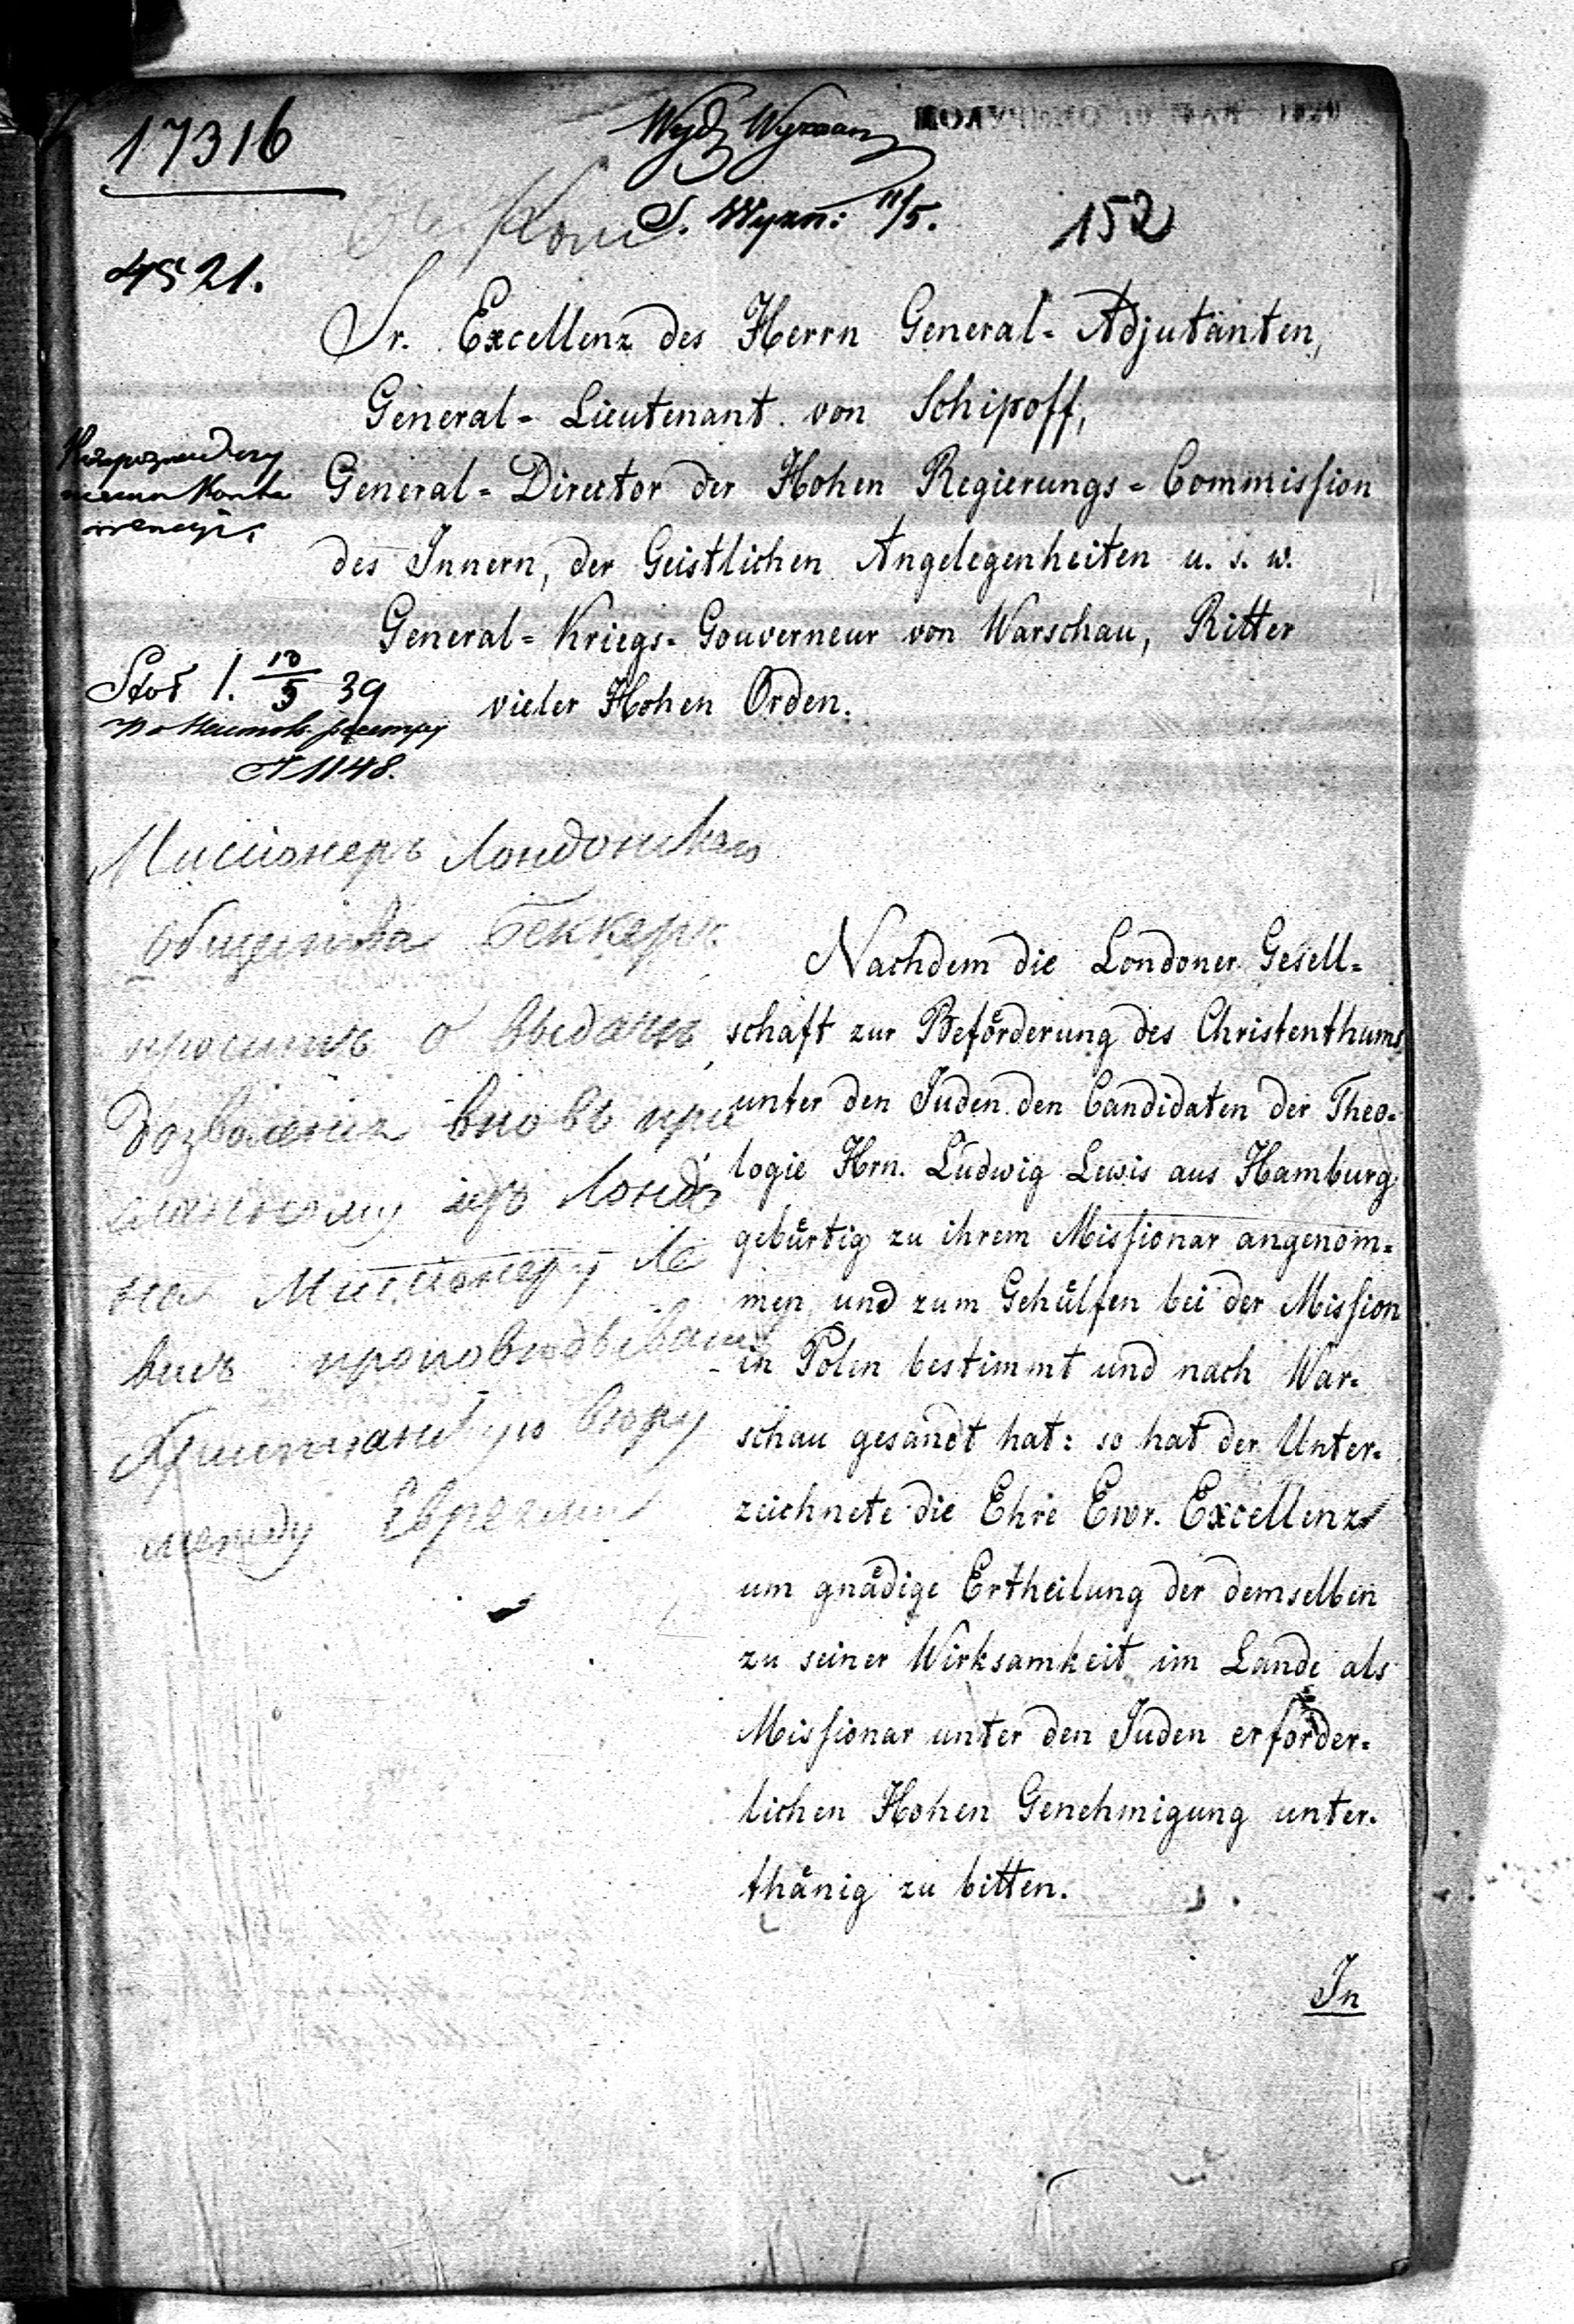 17316
Wydz Wyznań
S. Wyzn: 11/5.
152
4521.
Sr. Excellenz des Herrn General- Adjutanten,
General- Lieutenant von Schipoff,
General- Director der Hohen Regierungs- Commission
des Innern, der Geistlichen Angelegenheiten u. s. w.
General- Kriegs- Gouverneur von Warschau, Ritter
vieler Hohen Orden.
1. 10/5 39
1148.
Миссіонеръ Лондонскаго
общества Беккеръ
проситъ о выдачѣ
дозволенія вновь при
сланному изъ Лондо
на Миссіонеру Ле
вису проповѣдывать
Христіанскую вѣру
между Евреями
Nachdem die Londoner Gesell-
schaft zur Beförderung des Christenthums
unter den Juden den Candidaten der Theo-
logie Hrn. Ludwig Lewis aus Hamburg
gebürtig zu ihrem Missionar angenom-
men und zum Gehülfen bei der Mission
in Polen bestimmt und nach War-
schau gesandt hat: so hat der Unter-
zeichnete die Ehre Ewr. Excellenz
um gnädige Ertheilung der demselben
zu seiner Wirksamkeit im Lande als
Missionar unter den Juden erforder-
lichen Hohen Genehmigung unter-
thänig zu bitten.
In